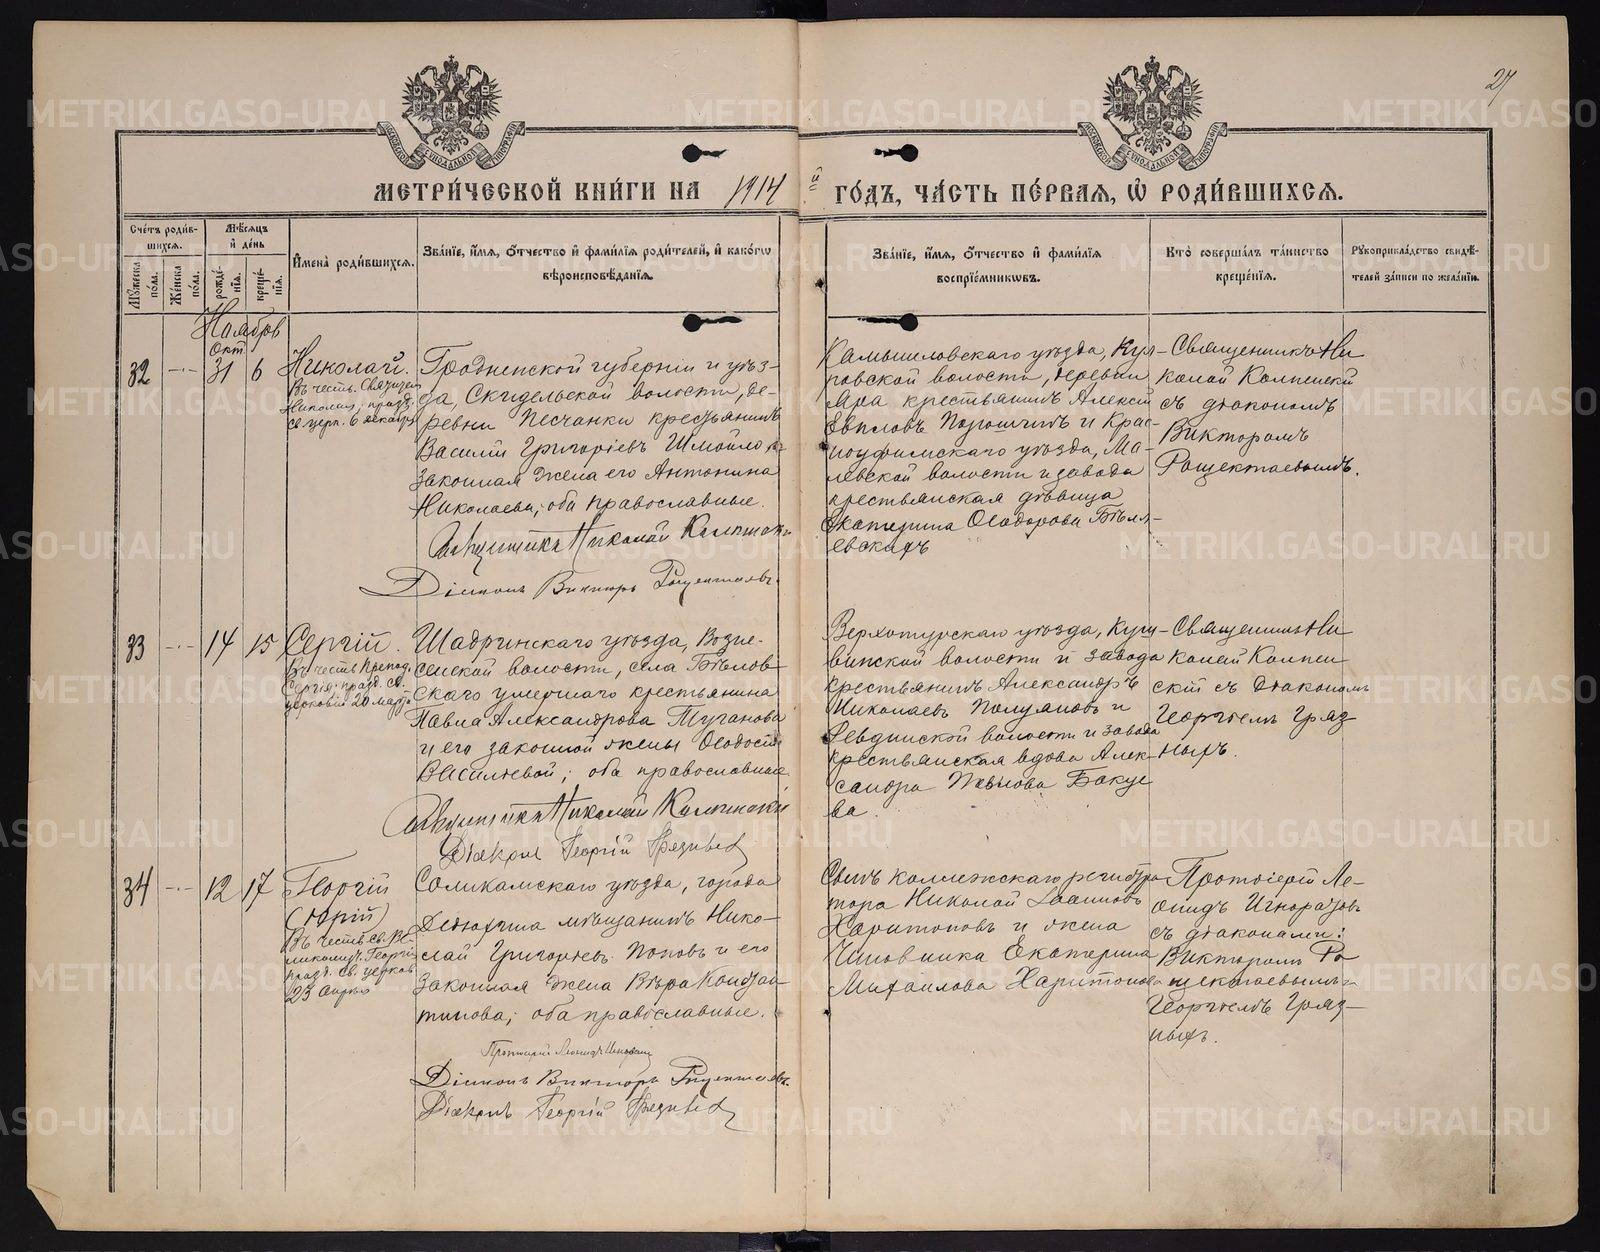 27
МЕТРИ́ЧЕСКОЙ КНИ́ГИ НА 1914 й ГО́ДЪ, ЧА́СТЬ ПЕ́РВАЯ, Ѽ РОДИ́ВШИХСЯ.
Сче́тъ роди́в-
шихся.
Мꙋ́жеска по́ла.
Же́нска по́ла.
Мѣ́сяцъ
и҆ де́нь
рожде́-
нїя.
креще́-
нїя.
И҆мена̀ роди́вшихся.
Зва́нїе, и҆́мя, ѻ҆́тчество и҆ фами́лїя роди́телей, и҆ како́гѡ
вѣроисповѣ́данїя.
Зва́нїе, и҆́мя, ѻ҆́тчество и҆ фами́лїя
воспрїе́мникѡвъ.
Кто̀ соверша́лъ та́инство
креще́нїя.
Рꙋкоприкла́дство свидѣ́-
телей за́писи по жела́нїю.
Ноябрь
32
-·-
Окт
31
6
Николай.
Въ честь Святителя
Николая; празд.
св. церк. 6 декабря
Гродненской губерніи и уѣз-
да, Скидельской волости, де-
ревни Песчанки крестьянинъ
Василій Григорьевъ Шмойло и
законная жена его Антонина
Николаева; оба православные.
Священникъ Николай Колпенскій
Діаконъ Викторъ Рощектаевъ.
Камышловскаго уѣзда,
ровской волости, деревни
крестьянинъ Алексѣй
Паршинъ и Крас-
ноуфимскаго уѣзда,
левской волости и завода
крестьянская дѣвица
Екатерина Ѳеодорова Бѣля-
евскихъ
Священникъ Ни
колай Колпенскій
съ діакономъ
Викторомъ
Рощектаевымъ.
33
-·-
14
15
Сергій.
Въ честь Препод.
Сергія; празд. св.
церковію 20 марта
Шадринскаго уѣзда, Возне-
сенской волости, села Бѣлов-
скаго умершаго крестьянина
Павла Александрова Туганова
и его законной жены Ѳеодосіи
Васильевой; оба православные.
Священникъ Николай Колпенскій
Діаконъ Георгій Грязныхъ
Верхотурскаго уѣзда, Куш-
винской волости и завода
крестьянинъ Александръ
Николаевъ Полуяновъ и
Ревдинской волости и завода
крестьянская вдова Алек-
сандра Павлова Бакуе
ва.
Священникъ Ни
колай Колпен
скій съ діакономъ
Георгіемъ Гряз-
ныхъ.
34
-·-
12
17
Георгій
(Юрій)
Въ честь св. Ве-
ликомуч. Георгія
празд. св. церков.
23 Апрѣля
Соликамскаго уѣзда, города
Дедюхина мѣщанинъ Нико-
лай Григорьевъ Поповъ и его
законная жена Вѣра Констан-
тинова; оба православные.
Протоіерей Леонидъ Игноратовъ
Діаконъ Викторъ Рощектаевъ.
Діаконъ Георгій Грязныхъ
Сынъ коллежскаго регистра-
тора Николай Іоанновъ
Харитоновъ и жена
Чиновника Екатерина
Михаилова Харитонова
Протоіерей Ле-
онидъ Игноратовъ
съ діаконами:
Викторомъ Ро
щектаевымъ и
Георгіемъ Гряз-
ныхъ.
METRIKI.GASO-URAL.RU